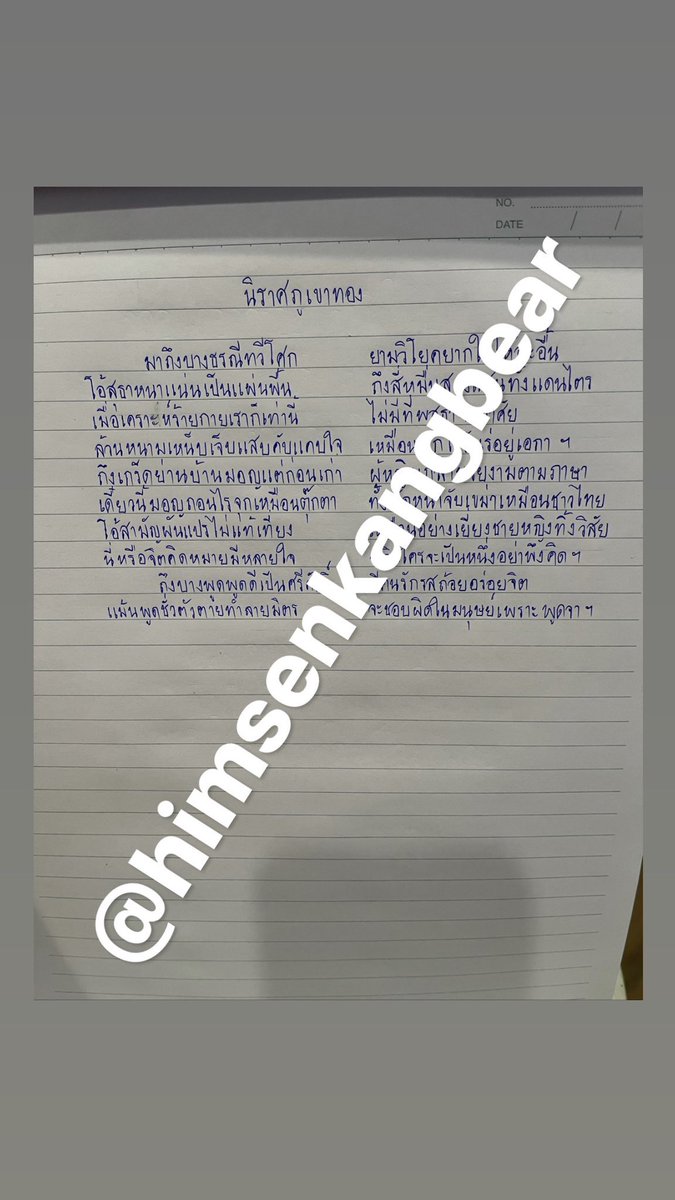 NO.
DATE / /
นิราศภูเขาทอง
มาถึงบางธรณีทวีโศก ยามวิโยคยากใ อื้น
โอ้สุธาหนาแน่นเป็นแผ่นพื้น ถึงสี่หมื่นส แดนไตร
เมื่อเคราะห์ร้ายกายเราก็เท่านี้ ไม่มีที่พ ศัย
ล้วนหนามเหน็บเจ็บแสบคับแคบใจ เหมือน ร่อยู่เอกา ฯ
ถึงเกร็ดย่านบ้านมอญแต่ก่อนเก่า ผู้ห งามตามภาษา
เดี๋ยวนี้มอญถอนไรจุกเหมือนตุ๊กตา ทั้ง หน้าจับเขม่าเหมือนชาวไทย
โอ้สามัญผันแปรไม่แท้เที่ยง อย่างเยี่ยงชายหญิงทิ้งวิสัย
นี่หรือจิตคิดหมายมีหลายใจ ใครจะเป็นหนึ่งอย่าพึงคิด ฯ
ถึงบางพูดพูดดีเป็นศรี คนรักรสถ้อยอร่อยจิต
แม้นพูดชั่วตัวตายทำลายมิตร จะชอบผิดในมนุษย์เพราะพูดจา ฯ
@himsenkangbear